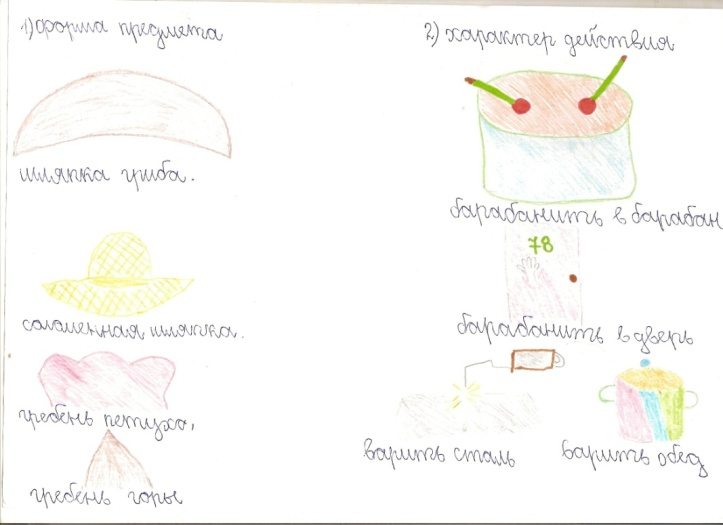 1) форма предмета
шляпка гриба.
соломенная шляпка.
гребень петуха,
гребень горы
2) характер действия
барабанить в барабан
78
барабанить в дверь
варить сталь
варить обед